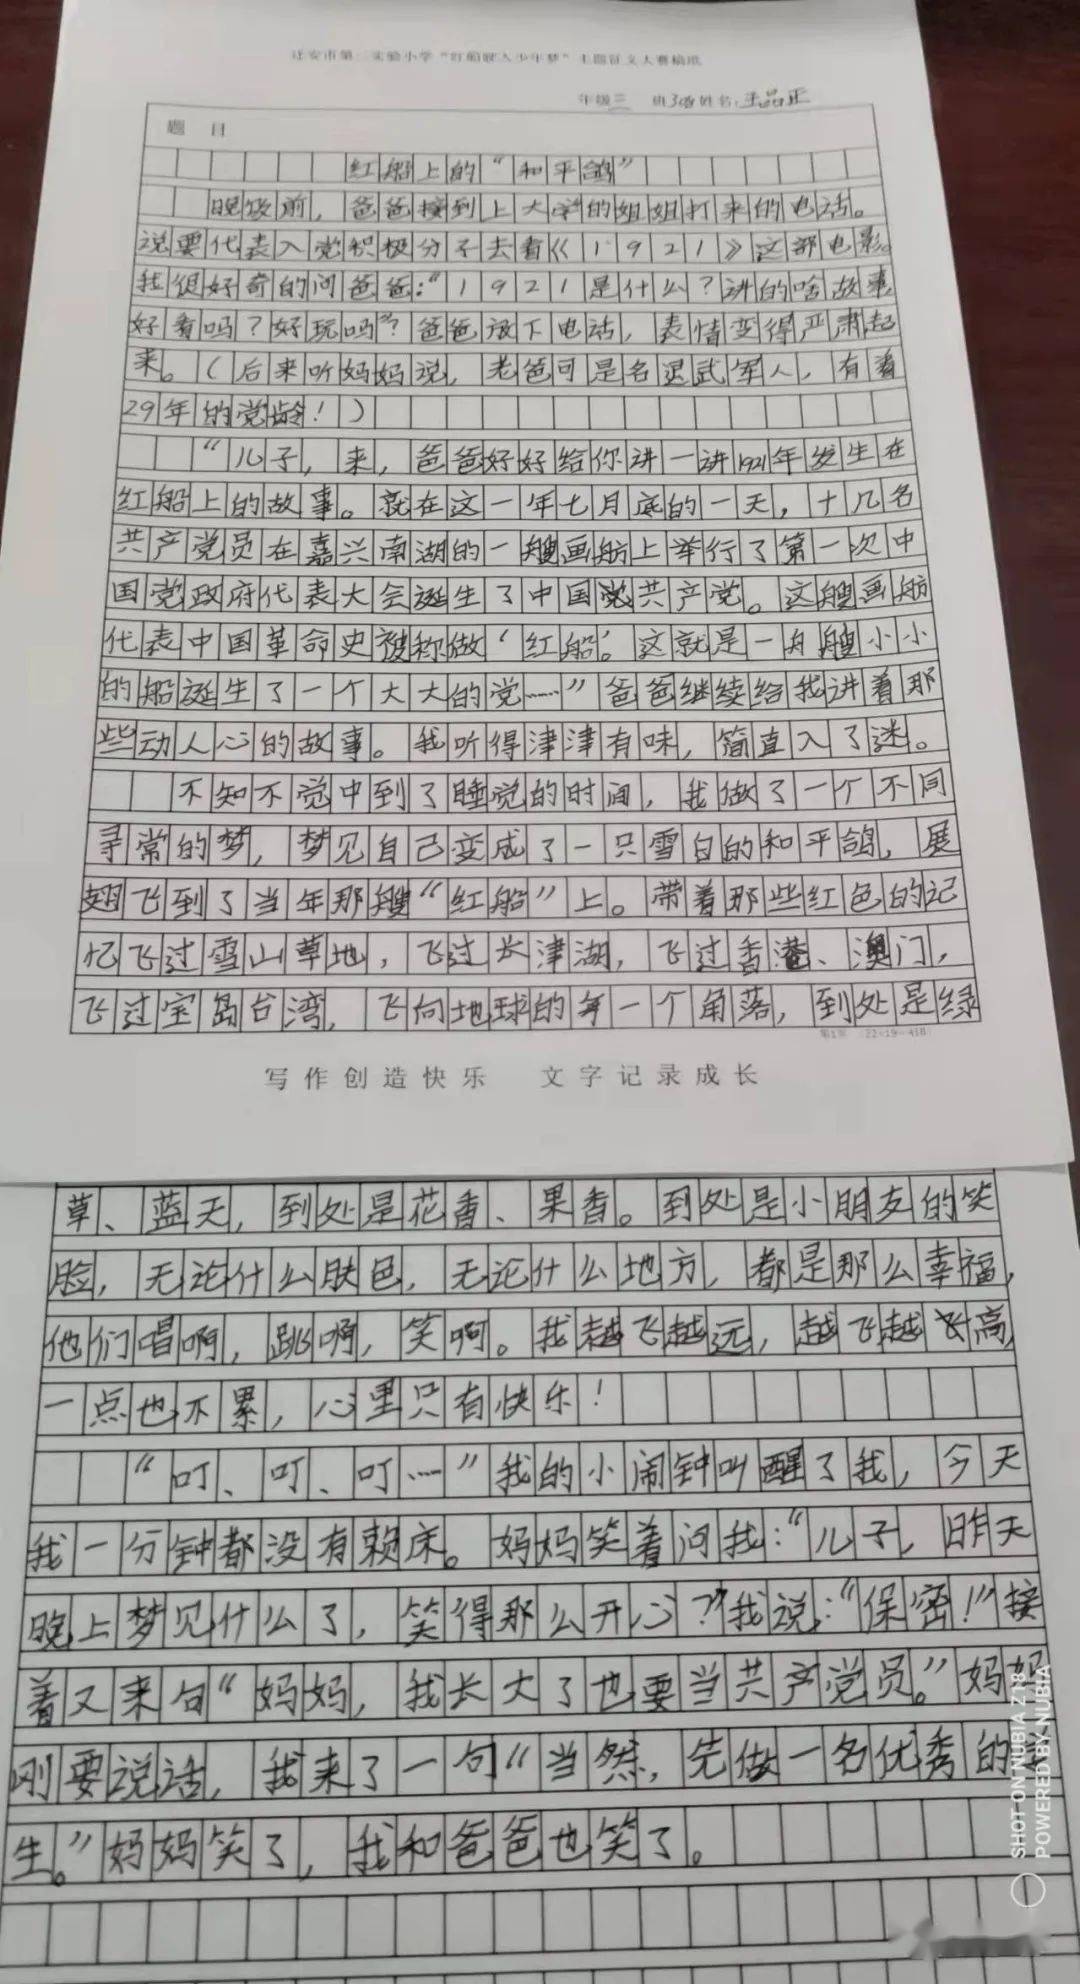 迁安市第二实验小学“红船驶入少年梦”主题征文大赛稿纸
年级三 班3(8)姓名:王品正
题 目
红船上的“和平鸽”
晚饭前，爸爸接到上大学的姐姐打来的电话。
说要代表入党积极分子去看《1921》这部电影。
我很好奇的问爸爸：“1921是什么？讲的啥故事，
好看吗？好玩吗”？爸爸放下电话，表情变得严肃起
来。（后来听妈妈说，老爸可是名退武军人，有着
29年的党龄！）
“儿子，来，爸爸好好给你讲一讲1921年发生在
红船上的故事。就在这一年七月底的一天，十几名
共产党员在嘉兴南湖的一艘画舫上举行了第一次中
国党政府代表大会诞生了中国共产党。这艘画舫
代表中国革命史被称做‘红船’。这就是一艘小小
的船诞生了一个大大的党……”爸爸继续给我讲着那
些动人心的故事。我听得津津有味，简直入了迷。
不知不觉中到了睡觉的时间，我做了一个不同
寻常的梦，梦见自己变成了一只雪白的和平鸽，展
翅飞到了当年那艘“红船”上。带着那些红色的记
忆飞过雪山草地，飞过长津湖，飞过香港、澳门，
飞过宝岛台湾，飞向地球的每一个角落，到处是绿
第1页 (22×19=418)
写作创造快乐 文字记录成长
草、蓝天，到处是花香、果香。到处是小朋友的笑
脸，无论什么肤色，无论什么地方，都是那么幸福，
他们唱啊，跳啊，笑啊。我越飞越远，越飞越高，
一点也不累，心里只有快乐！
“叮、叮、叮……”我的小闹钟叫醒了我，今天
我一分钟都没有赖床。妈妈笑着问我：“儿子，昨天
晚上梦见什么了，笑得那么开心？”我说：“保密！”接
着又来句“妈妈，我长大了也要当共产党员。”妈妈
刚要说话，我来了一句“当然，先做一名优秀的
生。”妈妈笑了，我和爸爸也笑了。
SHOT ON NUBIA Z18
POWERED BY NUBIA